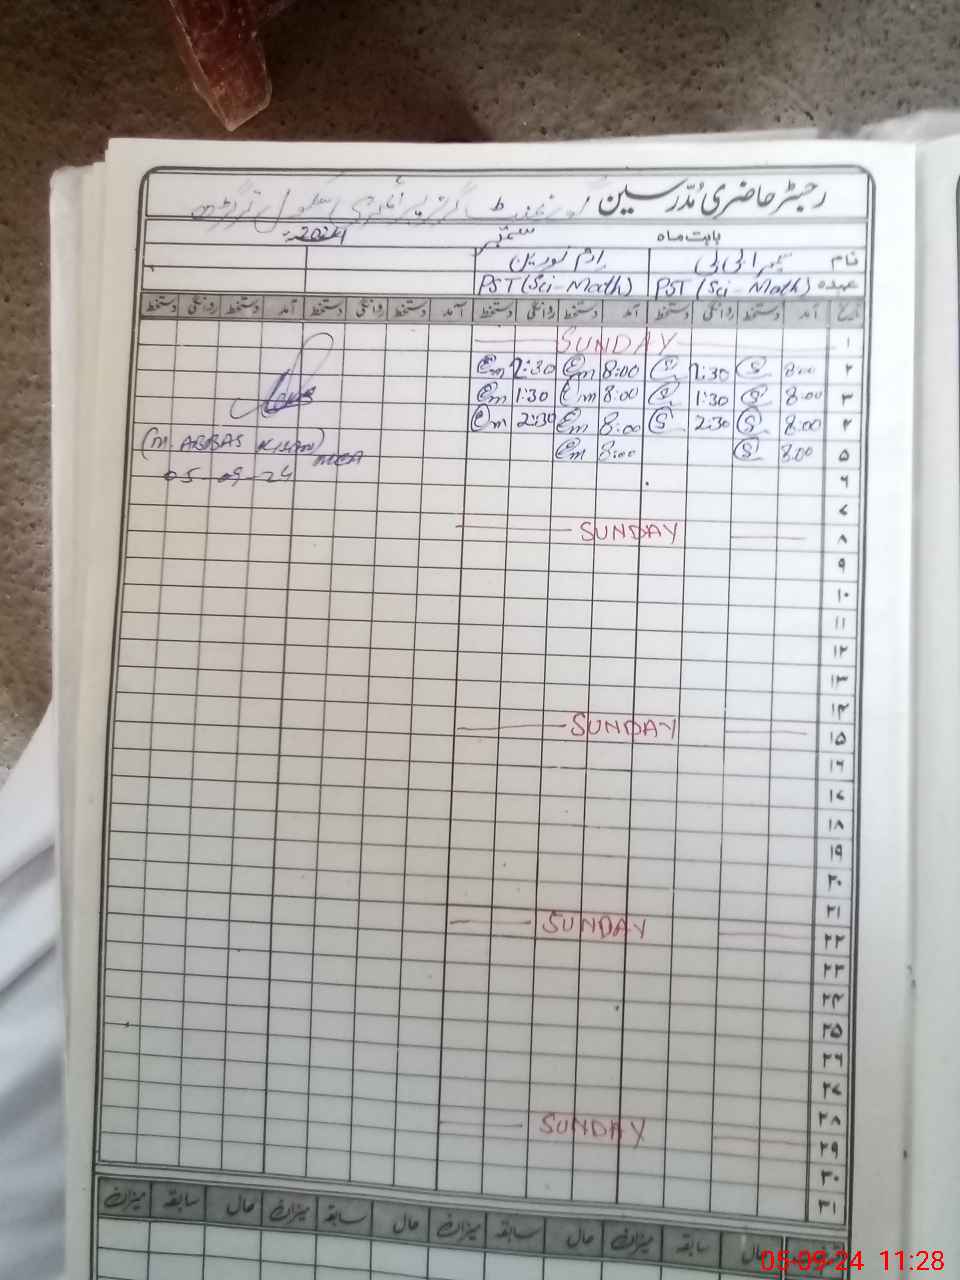 رجسٹر حاضری مُدّرسین گورنمنٹ گرلز پرائمری سکول
بابت ماہ ستمبر 2024
نام سمیرا بی بی ارم نورین
عہدہ PST (Sci-Math) PST (Sci-Math)
تاریخ آمد دستخط روانگی دستخط آمد دستخط روانگی دستخط آمد دستخط روانگی دستخط آمد دستخط روانگی دستخط
۱ SUNDAY
۲ 8:00 S 1:30 S 8:00 Em 1:30 Em
۳ 8:00 S 1:30 S 8:00 Em 1:30 Em
۴ 8:00 S 2:30 S 8:00 Em 2:30 Em
۵ 8:00 S 8:00 Em
(M. ABBAS KHAN) MEA
05-09-24
۶
۷
۸ SUNDAY
۹
۱۰
۱۱
۱۲
۱۳
۱۴
۱۵ SUNDAY
۱۶
۱۷
۱۸
۱۹
۲۰
۲۱
۲۲ SUNDAY
۲۳
۲۴
۲۵
۲۶
۲۷
۲۸
۲۹ SUNDAY
۳۰
۳۱
حال سابقہ میزان حال سابقہ میزان حال سابقہ میزان حال سابقہ میزان
05-09-24 11:28